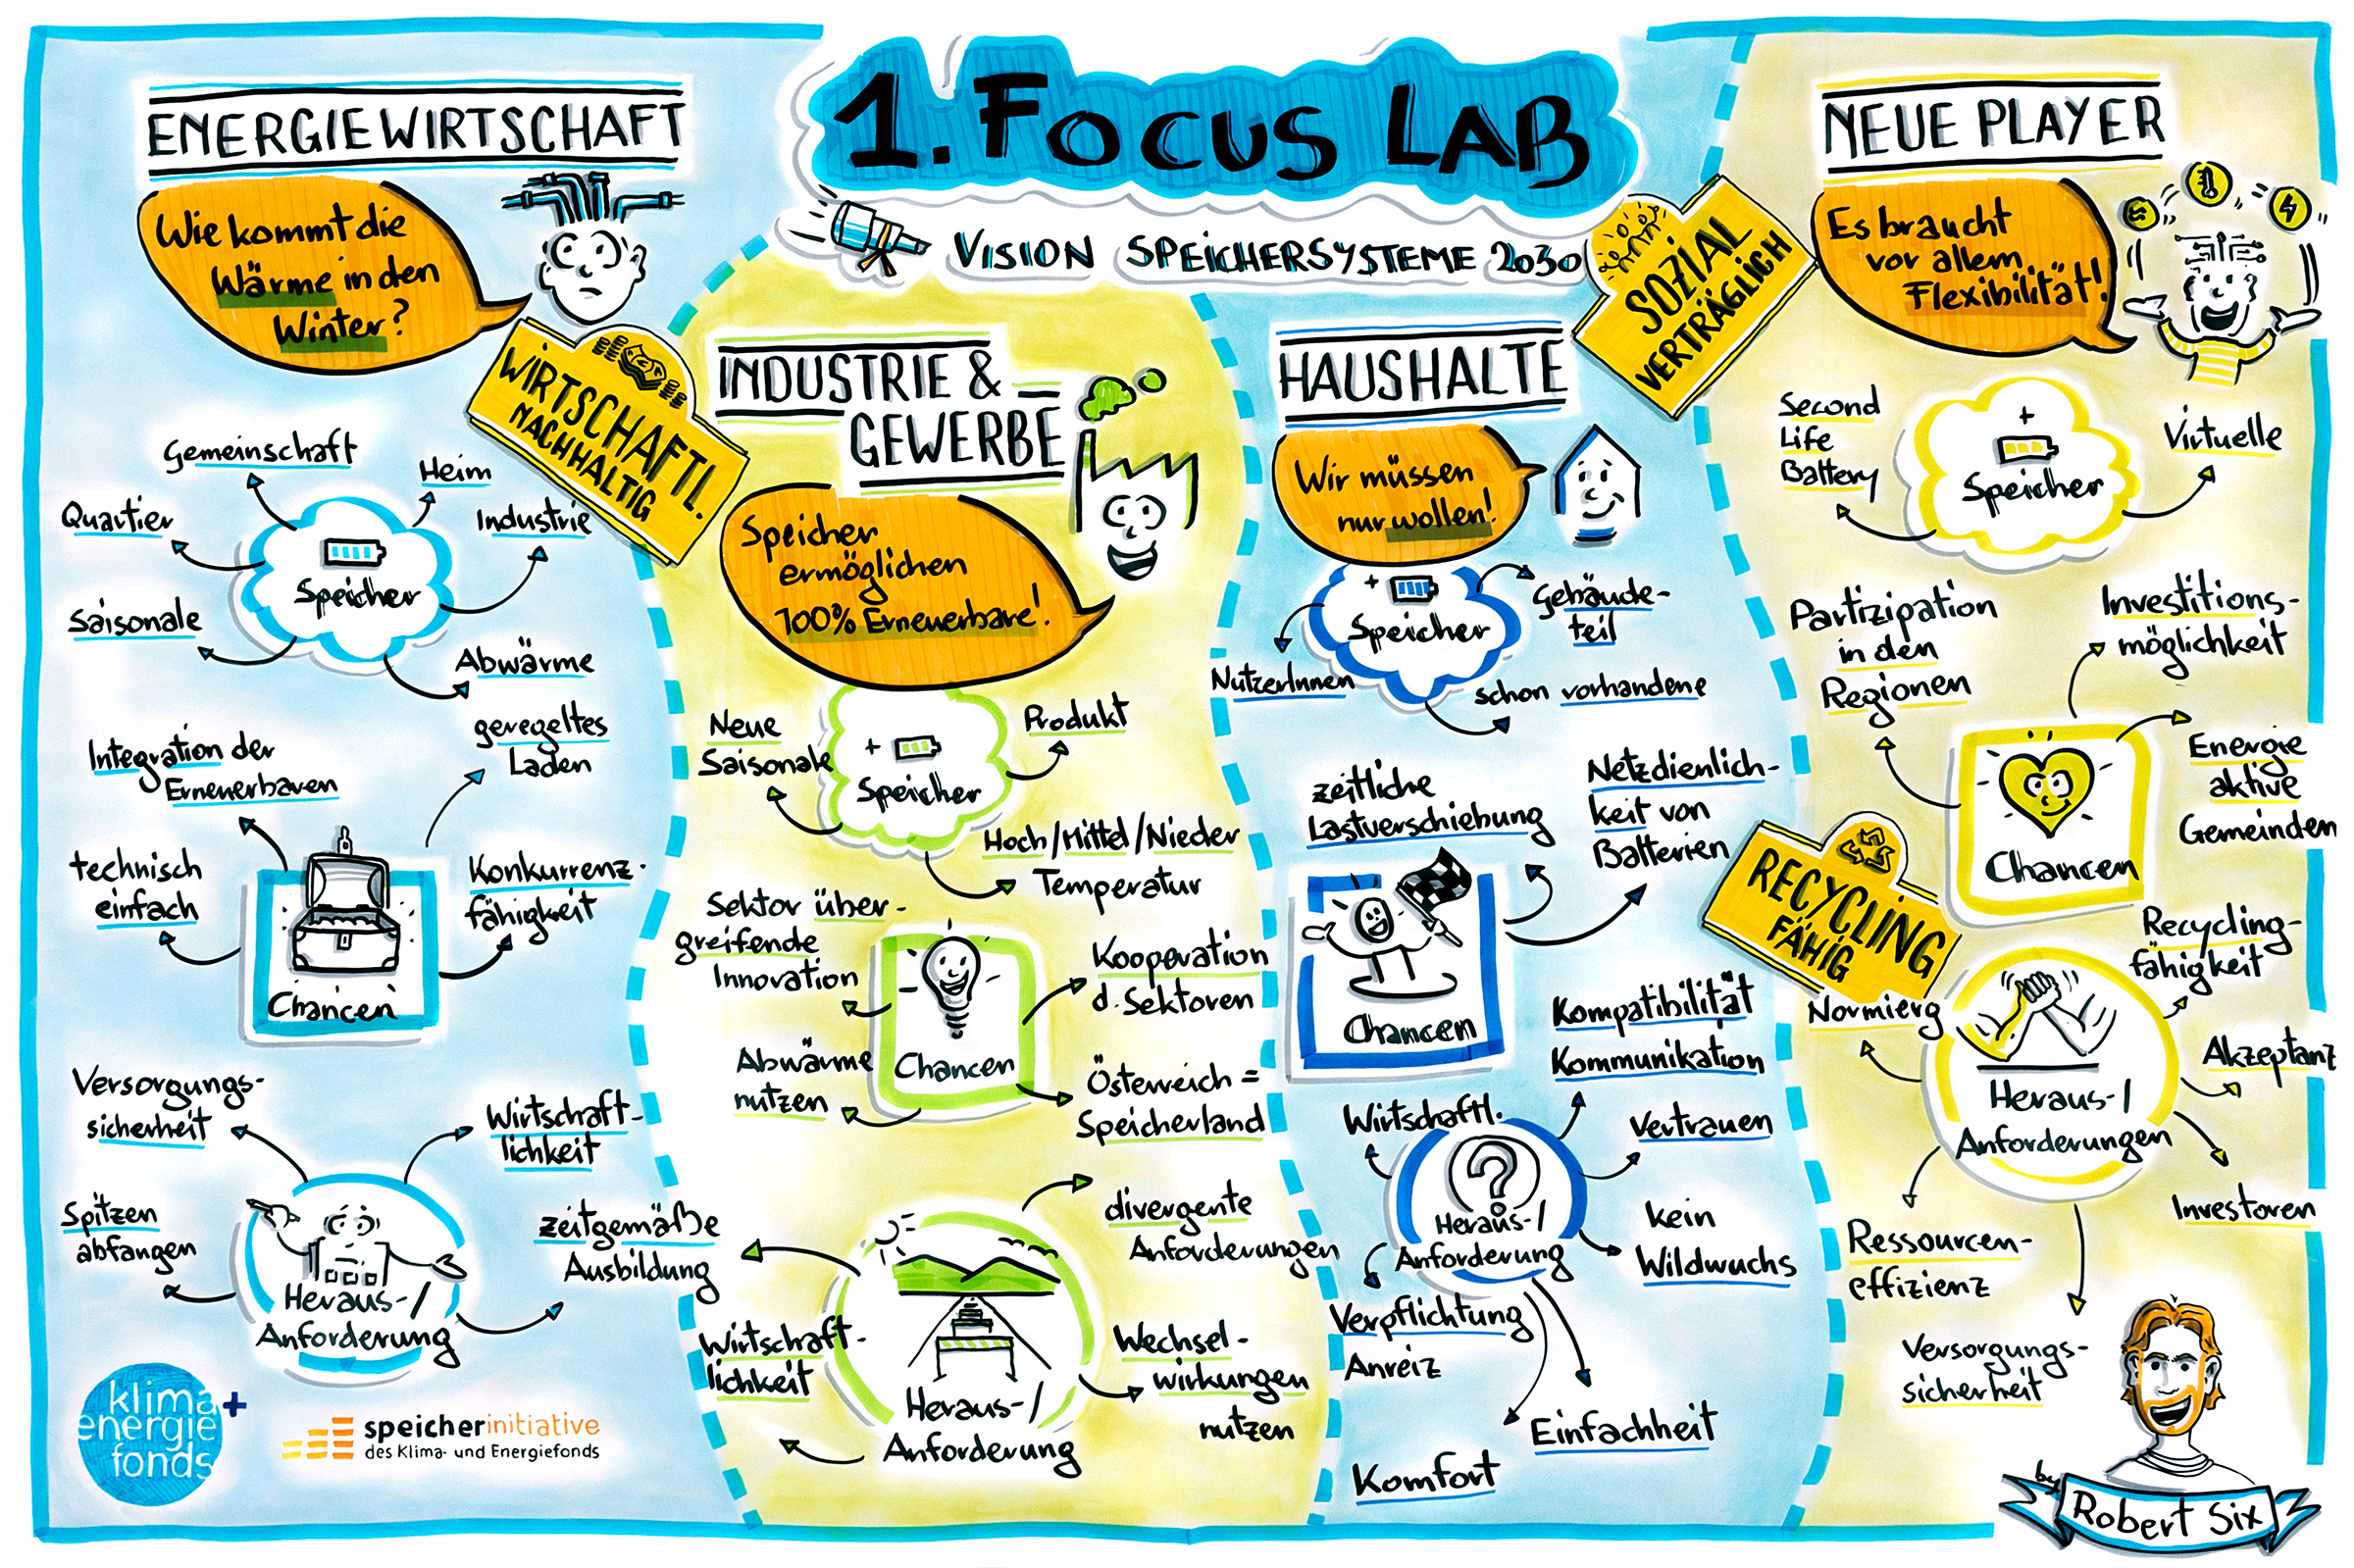 1. FOCUS LAB
VISION SPEICHERSYSTEME 2030
ENERGIEWIRTSCHAFT
Wie kommt die
Wärme in den
Winter?
WIRTSCHAFTL.
NACHHALTIG
Gemeinschaft
Heim
Quartier
Industrie
Speicher
Saisonale
Abwärme
geregeltes
Laden
Integration der
Erneuerbaren
technisch
einfach
Konkurrenz-
fähigkeit
Chancen
Versorgungs-
sicherheit
Wirtschaft-
lichkeit
Spitzen
abfangen
zeitgemäße
Ausbildung
Heraus-/
Anforderung
klima+
energie
fonds
speicherinitiative
des Klima- und Energiefonds
INDUSTRIE &
GEWERBE
Speicher
ermöglichen
100% Erneuerbare!
Neue
Saisonale
Produkt
+
Speicher
Hoch/Mittel/Nieder
Temperatur
Sektor über-
greifende
Innovation
Kooperation
d. Sektoren
Abwärme
nutzen
Chancen
Österreich =
Speicherland
divergente
Anforderungen
Wirtschaft-
lichkeit
Wechsel-
wirkungen
nutzen
Heraus-/
Anforderung
HAUSHALTE
Wir müssen
nur wollen!
+
Speicher
Gebäude-
teil
NutzerInnen
schon vorhandene
zeitliche
Lastverschiebung
Netzdienlich-
keit von
Batterien
Chancen
Kompatibilität
Kommunikation
Wirtschaftl.
Vertrauen
?
Heraus-/
Anforderung
kein
Wildwuchs
Verpflichtung
Anreiz
Einfachheit
Komfort
SOZIAL
VERTRÄGLICH
NEUE PLAYER
Es braucht
vor allem
Flexibilität!
Second
Life
Battery
+
Speicher
Virtuelle
Partizipation
in den
Regionen
Investitions-
möglichkeit
Energie
aktive
Gemeinden
Chancen
RECYCLING
FÄHIG
Recycling-
fähigkeit
Normierg
Akzeptanz
Heraus-/
Anforderungen
Investoren
Ressourcen-
effizienz
Versorgungs-
sicherheit
by
Robert Six